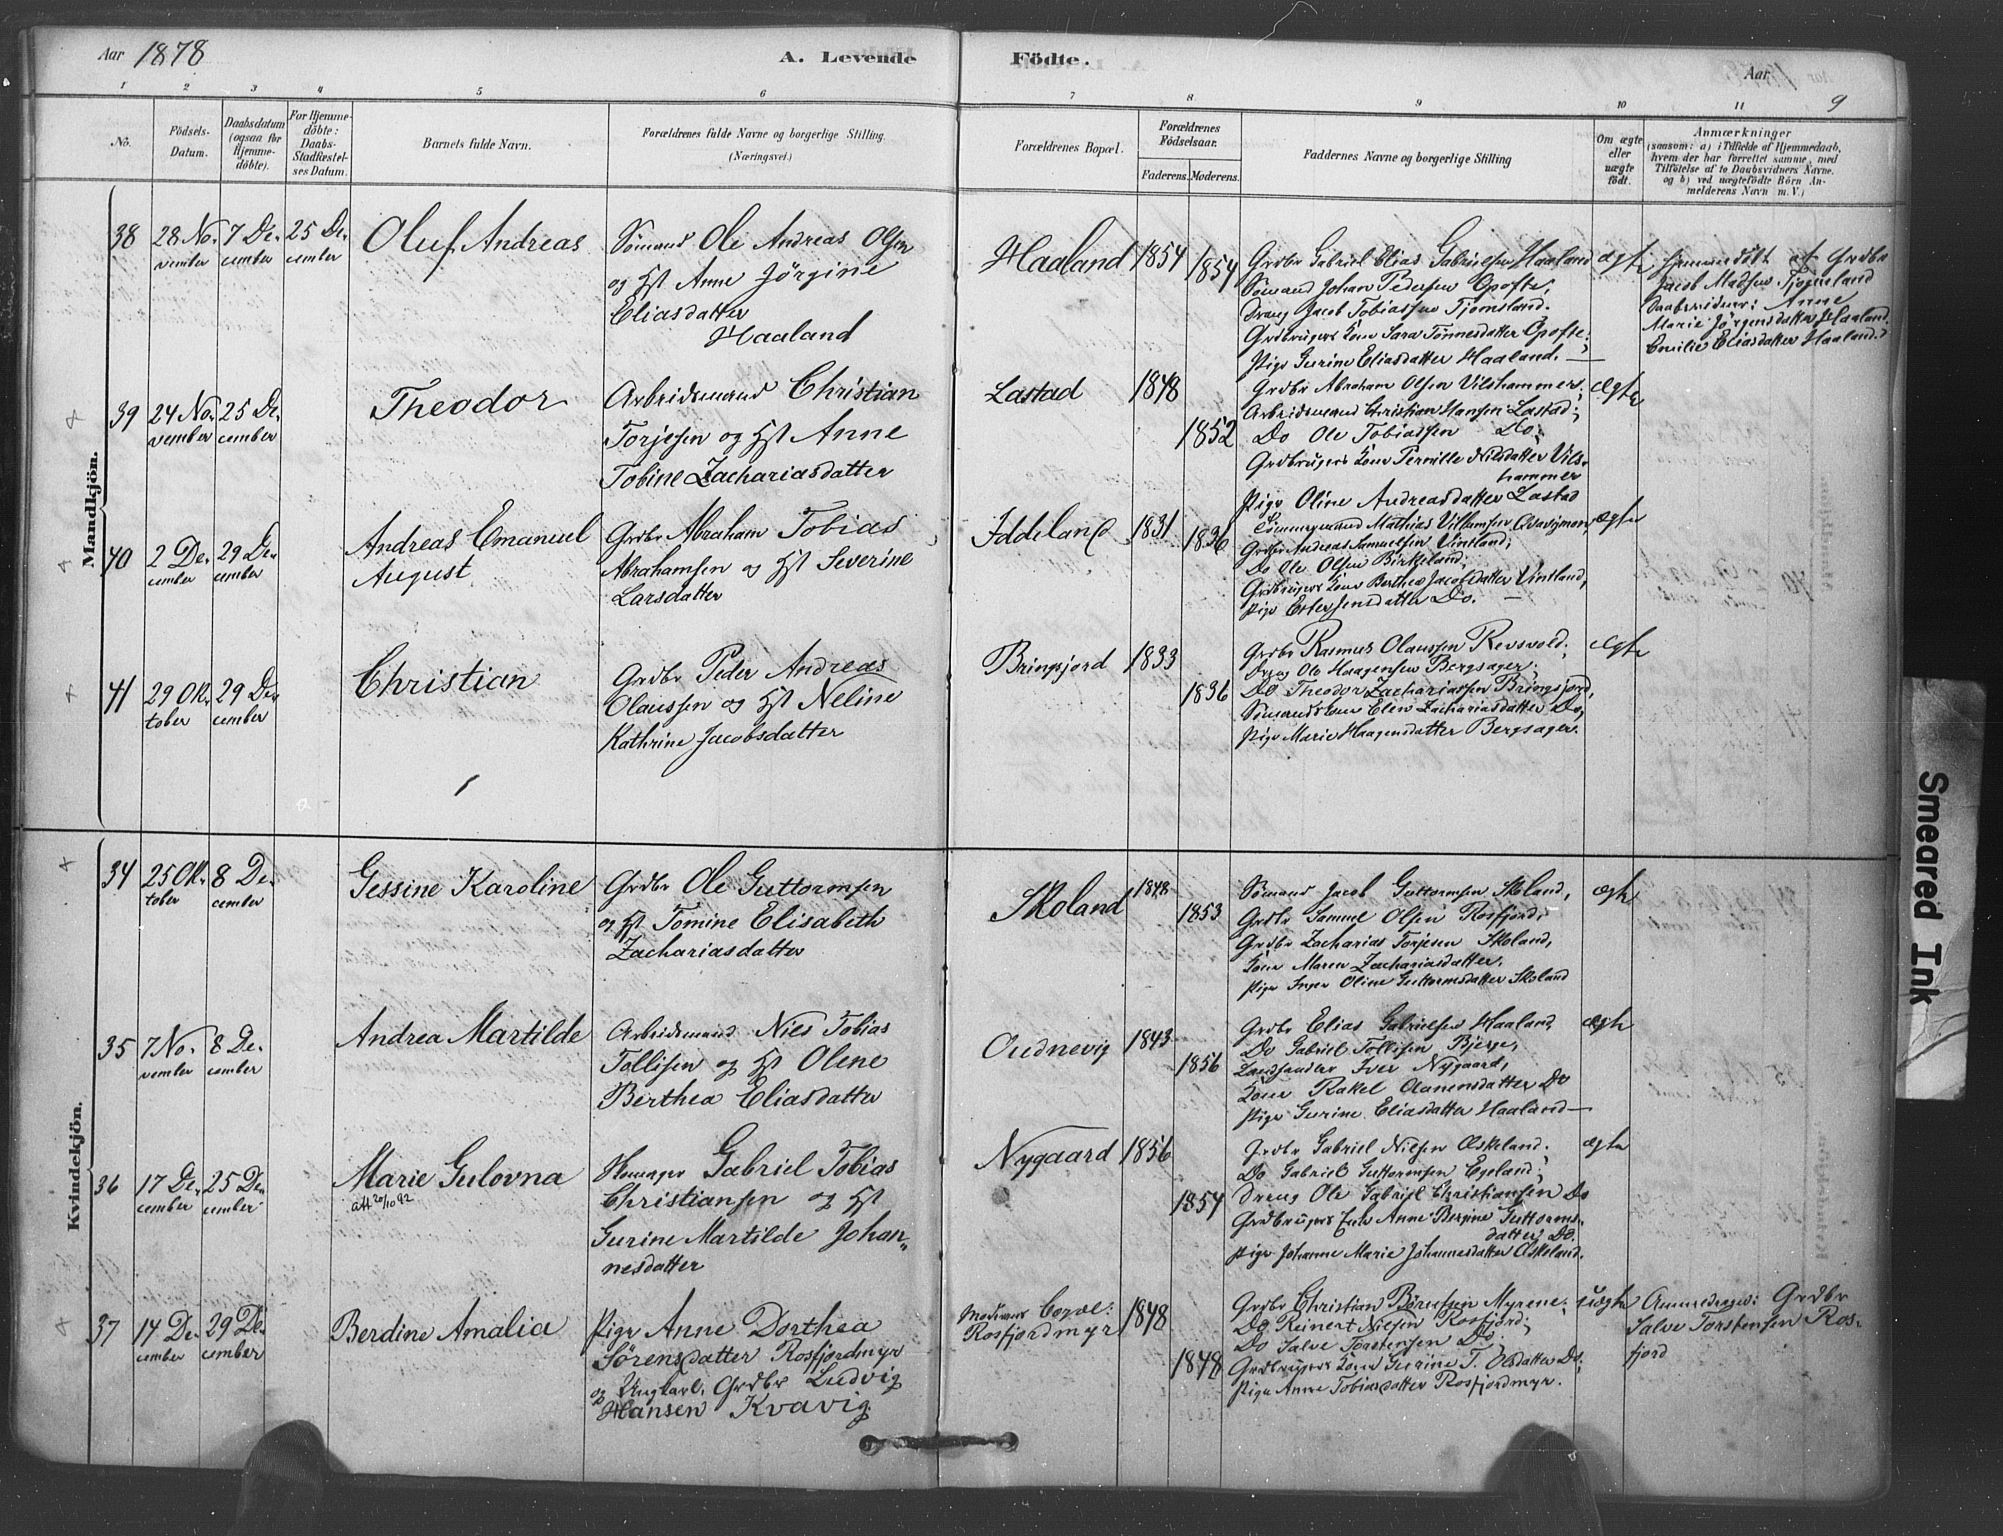 Aar 1878
A. Levende Födte.
Aar
9
1 2 3 4 5 6 7 8 9 10 11
No.
Födsels-
Datum.
Daabsdatum
(ogsaa for
Hjemme-
döbte).
For Hjemme-
döbte:
Daabs-
Stadfæstel-
ses Datum.
Barnets fulde Navn.
Forældrenes fulde Navne og borgerlige Stilling.
(Næringsvei.)
Forældrenes Bopæl.
Forældrenes
Födselsaar.
Faderens. Moderens.
Faddernes Navne og borgerlige Stilling
Om ægte
eller
uægte
födt.
Anmærkninger
(saasom: a) i Tilfælde af Hjemmedaab,
hvem der har forrettet samme, med
Tilföielse af to Daabsvidners Navne.
og b) ved uægtefödte Börn An-
melderens Navn m. V.)
Mandkjön.
38
28 No-
vember
7 De-
cember
25 De-
cember
Oluf Andreas
Sømand Ole Andreas Olsen
og Hst Anne Jørgine
Eliasdatter
Haaland
Haaland
1854
1854
Grdbr Gabriel Elias Gabrielsen Haaland
Sømand Johan Pedersen Opofte,
Dreng Jacob Tobiassen Tjomsland.
Grdbrugers Kone Sara Tønnesdatter Opofte;
Pige Gurine Eliasdatter Haaland.
ægte
Hjemmedøbt af Grdbr
Jacob Madsen Tjomsland
Daabsvidner: Anne
Marie Jørgensdatter Haaland
Emilie Eliasdatter Haaland.
39
24 No-
vember
25 De-
cember
Theodor
Arbeidsmand Christian
Torjesen og Hst Anne
Tobine Zachariasdatter
Lastad
1848
1852
Grdbr Abraham Olsen Vilshammer;
Arbeidsmand Christian Hansen Lastad;
Do Ole Tobiassen Do;
Grdbrugers Kone Pernille Nilsdatter Vils-
hammer
Pige Oline Andreasdatter Lastad
ægte
40
2 De-
cember
29 De-
cember
Andreas Emanuel
August
Grdbr Abraham Tobias
Abrahamsen og Hst Severine
Larsdatter
Iddeland
1831
1836
Tømmermand Mathias Villumsen
Grdbr Andreas Samuelsen Vintland;
Do Ole Olsen Birkeland;
Grdbrugers Kone Berthea Jacobsdatter Vintland,
Pige Ester Jensdatter Do.
ægte
41
29 Ok-
tober
29 De-
cember
Christian
Grdbr Peder Andreas
Olaussen og Hst Neline
Kathrine Jacobsdatter
Bringsjord
1833
1836
Grdbr Rasmus Olaussen Revsvold;
Dreng Ole Haagensen Bergsager;
Do Theodor Zachariassen Bringsjord,
Sømands Kone Elen Zachariasdatter Do,
Pige Marie Haagensdatter Bergsager.
ægte
Kvindekjön.
34
25 Ok-
tober
8 De-
cember
Gessine Karoline
Grdbr Ole Guttormsen
og Hst Tomine Elisabeth
Zachariasdatter
Skoland
1848
1853
Sømand Jacob Guttormsen Skoland,
Grdbr Samuel Olsen Rosfjord;
Grdbr Zacharias Torjesen Skoland,
Kone Maren Zachariasdatter,
Pige Inger Oline Guttormsdatter Skoland
ægte
35
7 No-
vember
8 De-
cember
Andrea Martilde
Arbeidsmand Niels Tobias
Tollisen og Hst Olene
Berthea Eliasdatter
Oudnevig
1843
1856
Grdbr Elias Gabrielsen Haaland
Do Gabriel Tollisen Bjerge,
Landhandler Iver Nygaard,
Kone Rakel Aanensdatter Do
Pige Gurine Eliasdatter Haaland
ægte
36
17 De-
cember
25 De-
cember
Marie Gulovna
att 20/10 92
Skomager Gabriel Tobias
Christiansen og Hst
Gurine Martilde Johan-
nesdatter
Nygaard
1856
1854
Grdbr Gabriel Nilsen Øskeland;
Do Gabriel Guttormsen Egeland;
Dreng Ole Gabriel Christiansen Do
Grdbrugers Enke Anne Bergine Guttorms-
datter Do.
Pige Johanne Marie Johannesdatter Øskeland.
ægte
37
14 De-
cember
29 De-
cember
Berdine Amalia
Pige Anne Dorthea
Sørensdatter Rosfjordmyr
og Ungkarl, Grdbr Ludvig
Hansen Kvavig.
Moderens Bopæl:
Rosfjordmyr
1848
1848
Grdbr Christian Børresen Myrene;
Do Reinert Nielsen Rosfjord;
Do Salve Torstensen Do;
Grdbrugers Kone Gurine T. Olsdatter Do;
Pige Anne Tobiasdatter Rosfjordmyr.
uægte
Anmeldergen: Grdbr
Salve Torstensen Ros-
fjord
Smeared Ink